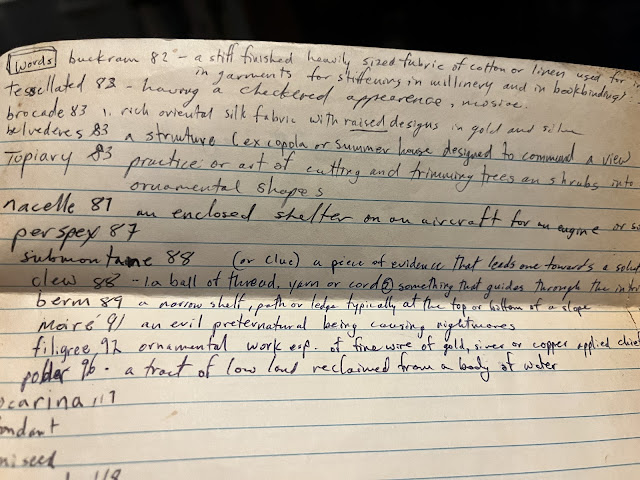 Words buckram 82 - a stiff finished heavily sized fabric of cotton or linen used for
in garments for stiffening in millinery and in bookbinding
tessellated 83 - having a checkered appearence, mosaic.
brocade 83 1. rich oriental silk fabric with raised designs in gold and silver
belvederes 83 a structure (ex copola or summer house designed to command a view
Topiary 83 practice or art of cutting and trimming trees an shrubs into
ornamental shapes
nacelle 87 an enclosed shelter on an aircraft for an engine or
perspex 87
submontane 88 (or clue) a piece of evidence that leads one towards a
clew 88 - 1a ball of thread, yarn or cord ② something that guides through the
berm 89 a narrow shelf, path or ledge typically at the top or bottom of a slope
Moiré 91 an evil preternatural being causing nightmares
filigree 92 ornamental work esp. of fine wire of gold, silver or copper applied
polder 96 - a tract of low land reclaimed from a body of water
ocarina 117